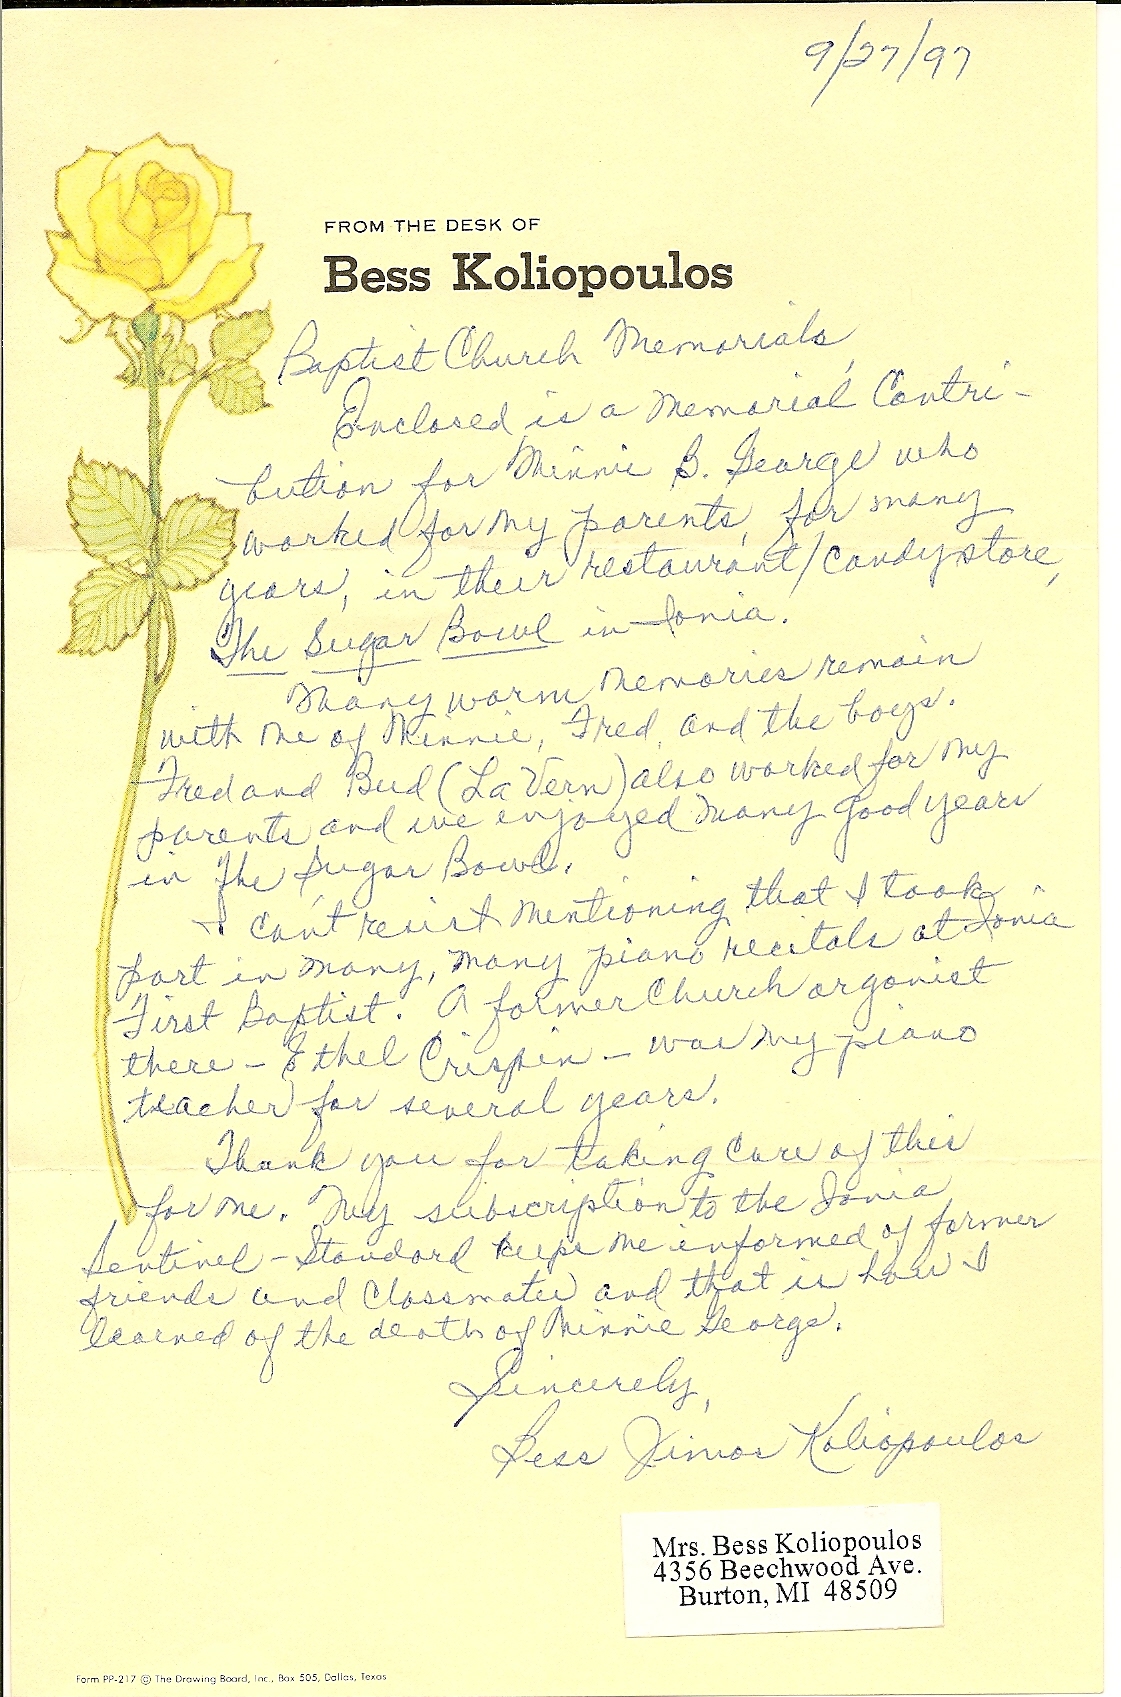 9/27/97
FROM THE DESK OF
Bess Koliopoulos
Baptist Church Memorials,
Enclosed is a Memorial Contri-
bution for Minnie B. George who
worked for my parents, for many
years, in their restaurant/candy store,
The Sugar Bowl in Ionia.
Many warm memories remain
with me of Minnie, Fred, and the boys.
Fred and Bud (LaVern) also worked for my
parents and we enjoyed many good years
in The Sugar Bowl.
I can't resist mentioning that I took
part in many, many piano recitals at Ionia
First Baptist. A former Church organist
there - Ethel Crispin - was my piano
teacher for several years.
Thank you for taking care of this
for me. My subscription to the Ionia
Sentinel-Standard keeps me informed of former
friends and Classmates and that is how I
learned of the death of Minnie George.
Sincerely,
Bess Koliopoulos
Mrs. Bess Koliopoulos
4356 Beechwood Ave.
Burton, MI 48509
Form PP-217 © The Drawing Board, Inc., Box 505, Dallas, Texas